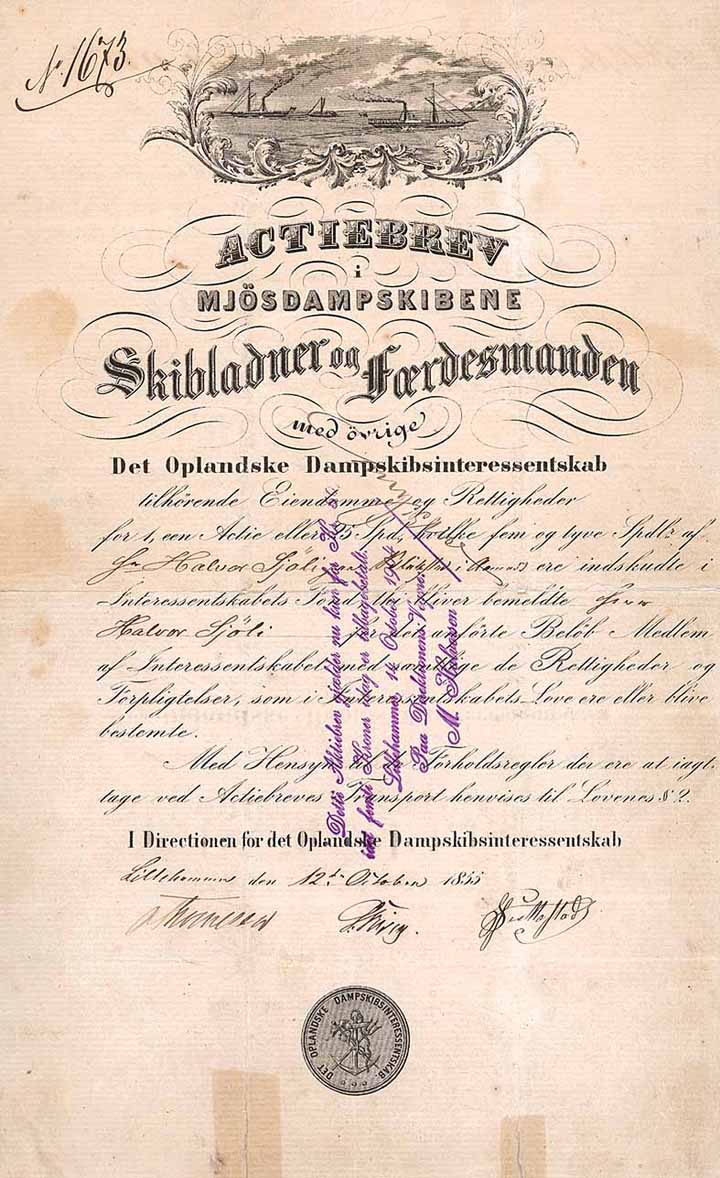 No. 1673.
ACTIEBREV
i
MJÖSDAMPSKIBENE
Skibladner og Færdesmanden
med övrige
Det Oplandske Dampskibsinteressentskab
tilhörende Eiendomme og Rettigheder
for 1, een Actie eller 25 Spd, hvilke fem og tyve Spdlr af
Hr Halvor Sjöli ere indskudte i
Interessentskabets Fond thi bliver bemeldte Herr
Halvor Sjöli for det anförte Belöb Medlem
af Interessentskabet med samtlige de Rettigheder og
Forpligtelser, som i Interessentskabets Love ere eller blive
bestemte.
Med Hensyn til de Forholdsregler der ere at iagt-
tage ved Actiebreves Transport henvises til Lovenes § 2.
I Directionen for det Oplandske Dampskibsinteressentskab
Lillehammer den 12te October 1855
DET OPLANDSKE DAMPSKIBSINTERESSENTSKAB.
Dette Aktiebrev gjælder nu kun for Kr.
femti Kroner i dag er tilbagebetalt.
Lillehammer 14 October
Paa Direktionens Vegne,
M. Halvorsen